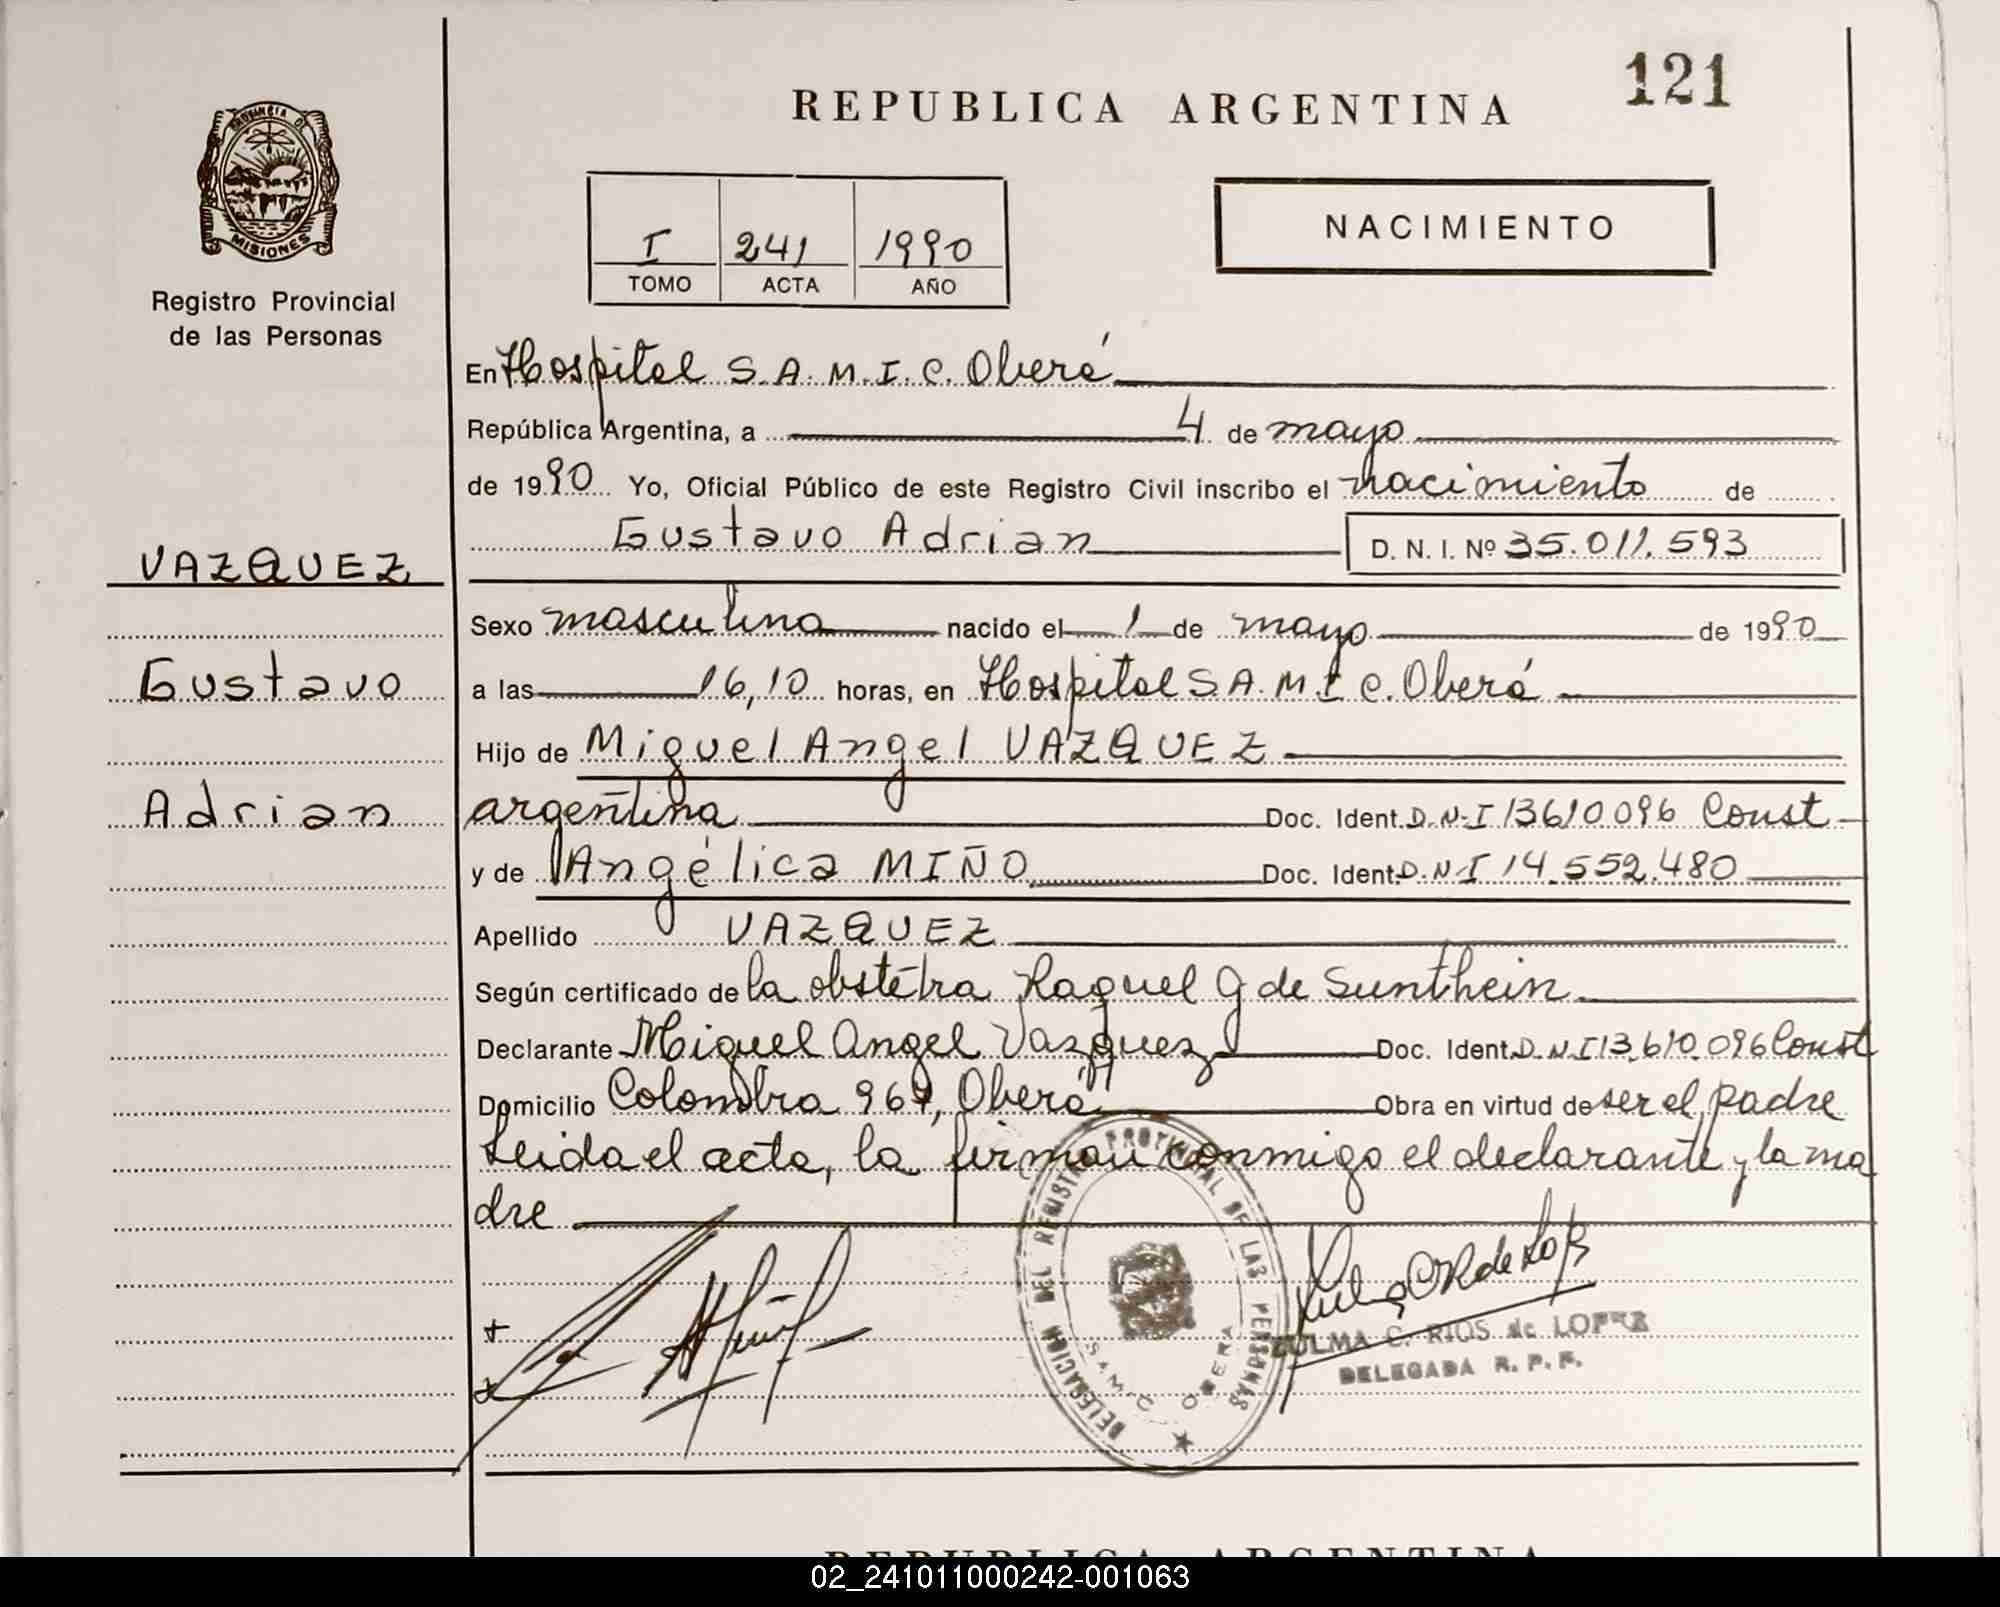 121
REPUBLICA ARGENTINA
PROVINCIA DE
MISIONES
Registro Provincial
de las Personas
I 241 1990
TOMO ACTA AÑO
NACIMIENTO
En Hospital S.A.M.I.C. Oberá
República Argentina, a 4 de mayo
de 1990 Yo, Oficial Público de este Registro Civil inscribo el nacimiento de
Gustavo Adrian D. N. I. Nº 35.011.593
VAZQUEZ
Sexo masculino nacido el 1 de mayo de 1990
Gustavo
a las 16,10 horas, en Hospital S.A.M.I.C. Oberá
Hijo de Miguel Angel VAZQUEZ
Adrian
argentina Doc. Ident. D.N.I 13610.096 Const
y de Angélica MIÑO Doc. Ident. D.N.I 14.552.480
Apellido VAZQUEZ
Según certificado de la obstétra Raquel G de Sunthein
Declarante Miguel Angel Vazquez Doc. Ident. D.N.I 13.610.096 Const
Domicilio Colombia 967, Oberá Obra en virtud de ser el padre
Leida el acta, la firman conmigo el declarante y la ma
dre
DELEGACION DEL REGISTRO PROVINCIAL DE LAS PERSONAS
S.A.M.C. OBERA
ZULMA C. RIOS de LOPEZ
DELEGADA R. P. P.
REPUBLICA ARGENTINA
02_241011000242-001063